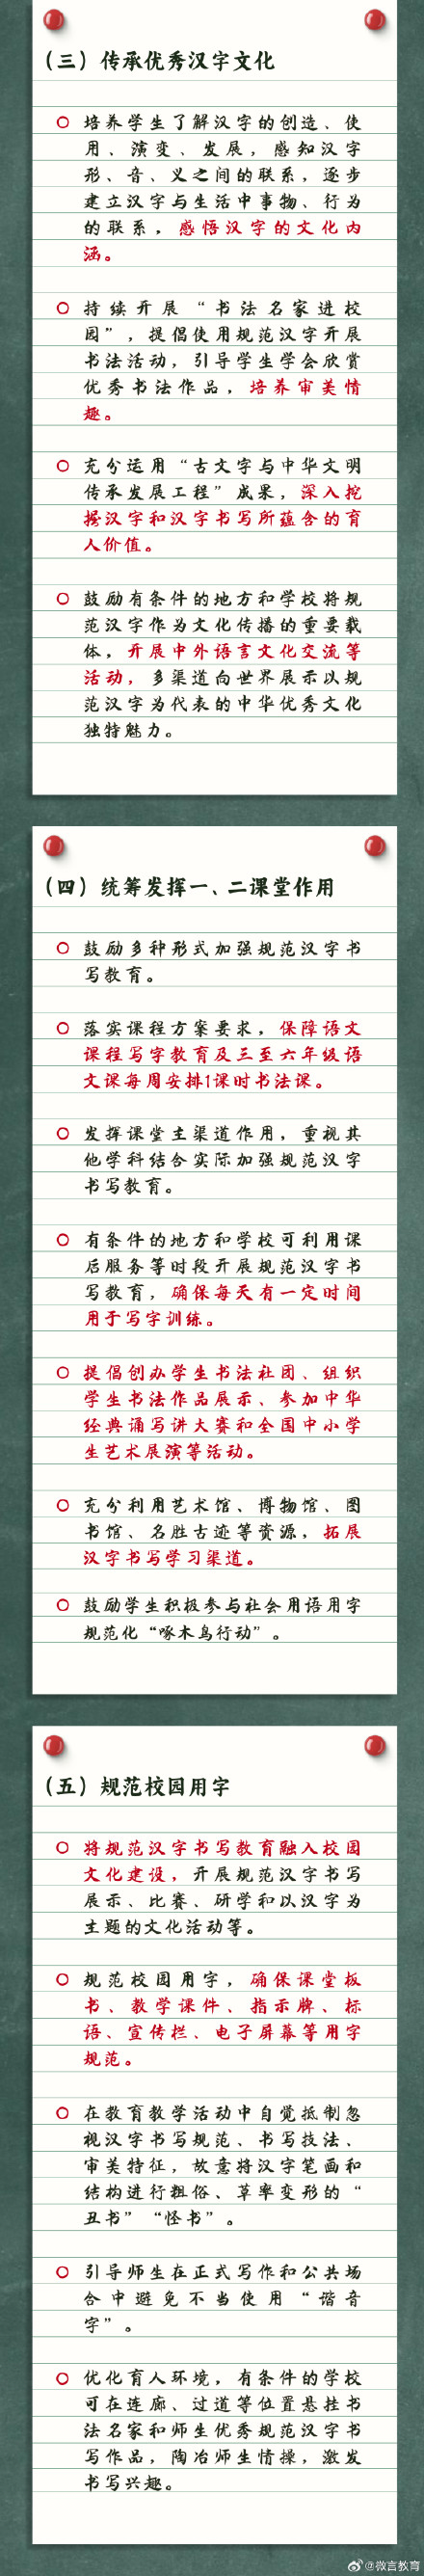 （三）传承优秀汉字文化
培养学生了解汉字的创造、使
用、演变、发展，感知汉字
形、音、义之间的联系，逐步
建立汉字与生活中事物、行为
的联系，感悟汉字的文化内
涵。
持续开展“书法名家进校
园”，提倡使用规范汉字开展
书法活动，引导学生学会欣赏
优秀书法作品，培养审美情
趣。
充分运用“古文字与中华文明
传承发展工程”成果，深入挖
掘汉字和汉字书写所蕴含的育
人价值。
鼓励有条件的地方和学校将规
范汉字作为文化传播的重要载
体，开展中外语言文化交流等
活动，多渠道向世界展示以规
范汉字为代表的中华优秀文化
独特魅力。
（四）统筹发挥一、二课堂作用
鼓励多种形式加强规范汉字书
写教育。
落实课程方案要求，保障语文
课程写字教育及三至六年级语
文课每周安排1课时书法课。
发挥课堂主渠道作用，重视其
他学科结合实际加强规范汉字
书写教育。
有条件的地方和学校可利用课
后服务等时段开展规范汉字书
写教育，确保每天有一定时间
用于写字训练。
提倡创办学生书法社团、组织
学生书法作品展示、参加中华
经典诵写讲大赛和全国中小学
生艺术展演等活动。
充分利用艺术馆、博物馆、图
书馆、名胜古迹等资源，拓展
汉字书写学习渠道。
鼓励学生积极参与社会用语用字
规范化“啄木鸟行动”。
（五）规范校园用字
将规范汉字书写教育融入校园
文化建设，开展规范汉字书写
展示、比赛、研学和以汉字为
主题的文化活动等。
规范校园用字，确保课堂板
书、教学课件、指示牌、标
语、宣传栏、电子屏幕等用字
规范。
在教育教学活动中自觉抵制忽
视汉字书写规范、书写技法、
审美特征，故意将汉字笔画和
结构进行粗俗、草率变形的“
丑书”“怪书”。
引导师生在正式写作和公共场
合中避免不当使用“谐音
字”。
优化育人环境，有条件的学校
可在连廊、过道等位置悬挂书
法名家和师生优秀规范汉字书
写作品，陶冶师生情操，激发
书写兴趣。
@微言教育